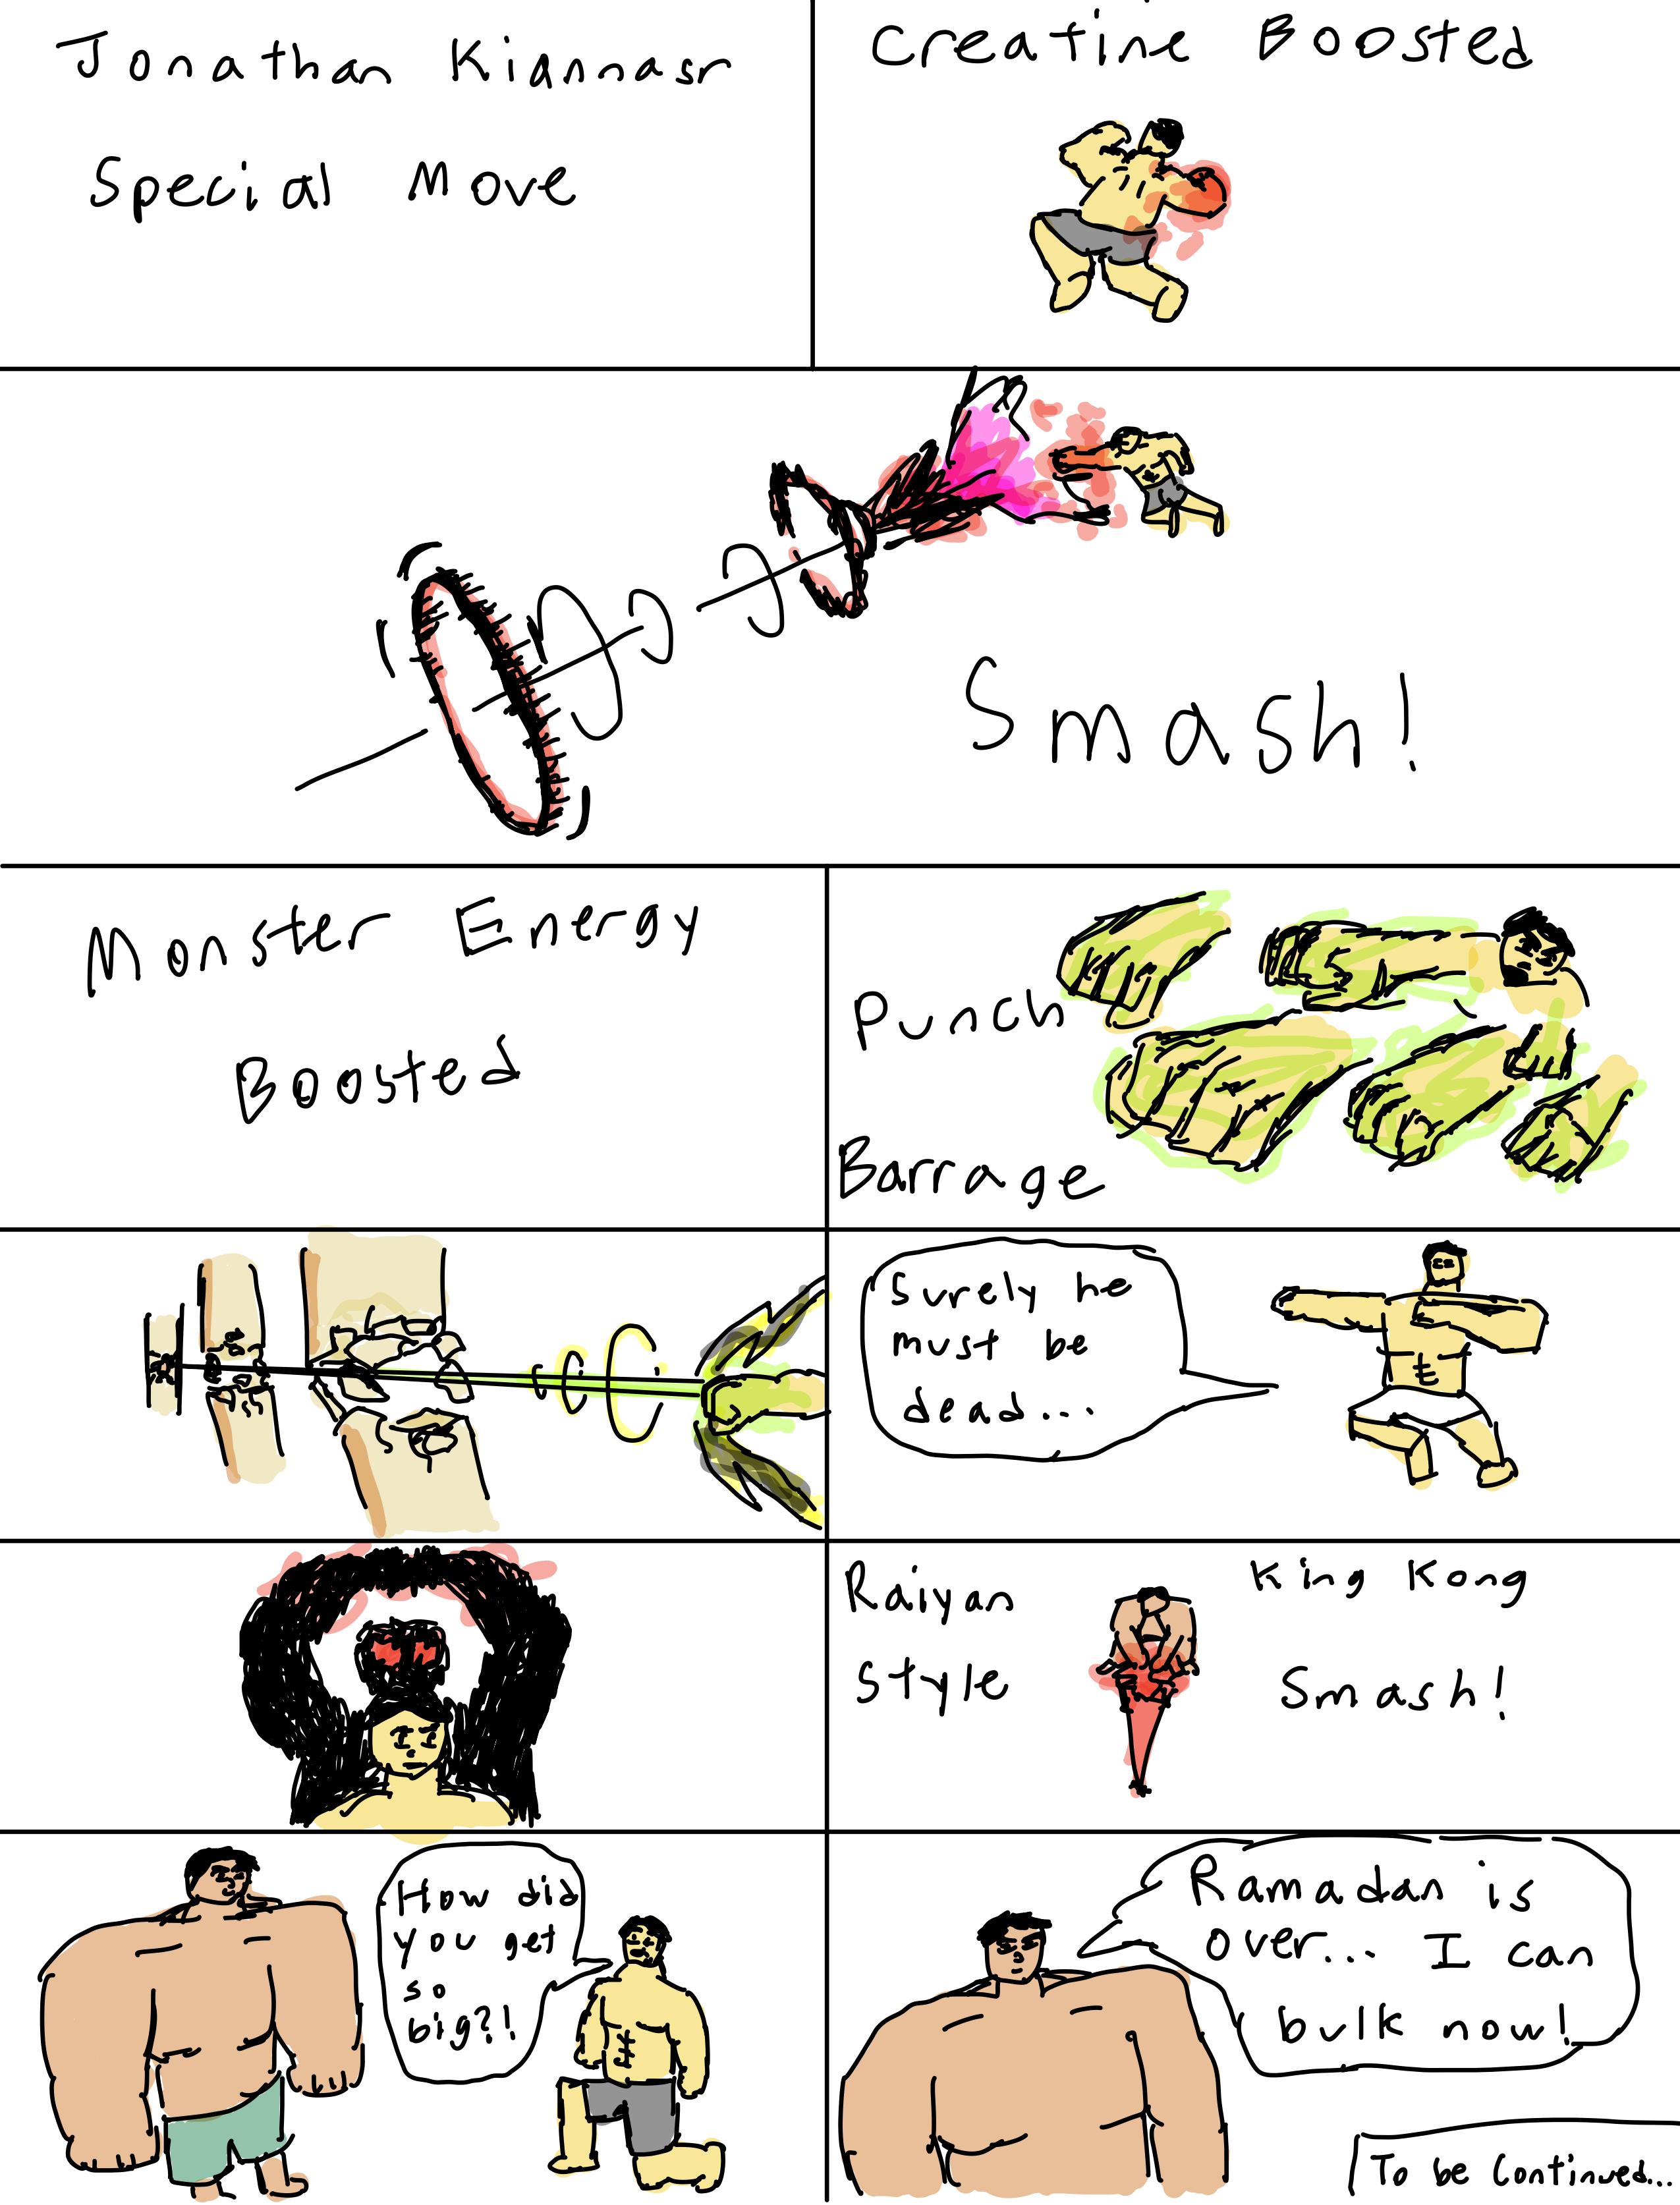 Jonathan Kiannasr
Special Move
Creatine Boosted
Smash!
Monster Energy
Boosted
Punch
Barrage
Surely he
must be
dead...
Raiyan
Style
King Kong
Smash!
How did
you get
so
big?!
Ramadan is
over... I can
bulk now!
To be Continued...